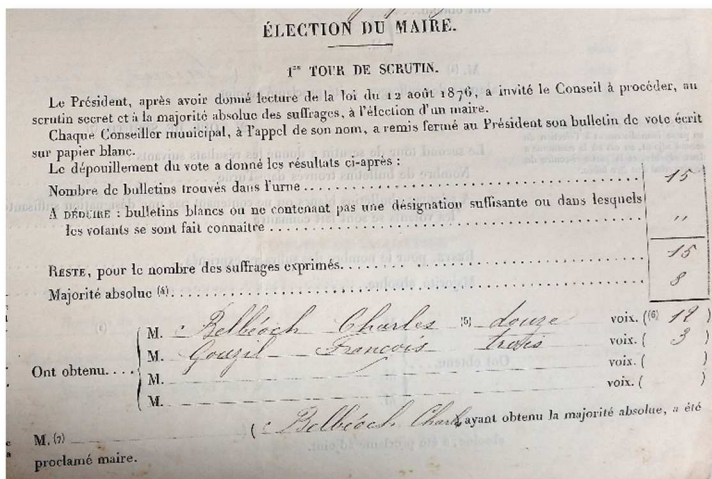 ÉLECTION DU MAIRE.
1ER TOUR DE SCRUTIN.
Le Président, après avoir donné lecture de la loi du 12 août 1876, a invité le Conseil à procéder, au
scrutin secret et à la majorité absolue des suffrages, à l'élection d'un maire.
Chaque Conseiller municipal, à l'appel de son nom, a remis fermé au Président son bulletin de vote écrit
sur papier blanc.
Le dépouillement du vote a donné les résultats ci-après :
Nombre de bulletins trouvés dans l'urne........ 15
A DÉDUIRE : bulletins blancs ou ne contenant pas une désignation suffisante ou dans lesquels
les votants se sont fait connaître........ "
RESTE, pour le nombre des suffrages exprimés........ 15
Majorité absolue (4)........ 8
Ont obtenu....
M. Belbéoch Charles (5) douze voix. (6) 12 )
M. Gouzil François trois voix. ( 3 )
M. voix. ( )
M. voix. ( )
M. (7) Belbéoch Charles ayant obtenu la majorité absolue, a été
proclamé maire.